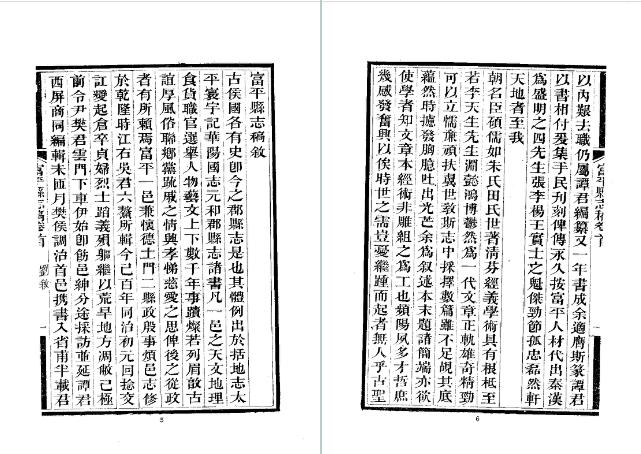 富平縣志稿敘
古侯國各有史卽今之郡縣志是也其體例出於括地志太
平寰宇記華陽國志元和郡縣志諸書凡一邑之天文地理
食貨職官選舉人物藝文上下數千年事蹟燦若列眉敵古
誼厚風俗聯鄉黨戚之情興孝悌慈愛之思俾後之從政
者有所賴焉富平一邑兼懷德土門二縣政殷事煩邑志修
於乾隆時江右吳君六鰲所輯今已百年同治初元回捻交
訌變起倉卒貞婦烈士蹈義殞軀繼以荒旱地方凋敝已極
前令尹樊君雲門下車伊始卽飭邑紳分途採訪並延譚君
西屏商同編輯未匝月樊侯調治首邑携書入省甫半載君
富平縣志稿卷首
劉敘
一
5
以內艱去職仍屬譚君編纂又一年書成余適膺斯篆譚君
以書相付爰集手民刋刻俾傳永久按富平人材代出秦漢
爲盛明之四先生張李楊王貫士之魁傑勁節孤忠磊然軒
天地者至我
朝名臣碩儒如朱氏田氏世著淸芬經義學術具有根柢至
若李天生先生淵懿鴻博鬱然爲一代文章正軌雄奇精勁
可以立懦廉頑扶翼世敎斯志中採擇數篇雖不足覘其底
蘊然時攄發胸臆吐出光芒余爲叙述本末題諸簡端亦欲
使學者知文章本經術非雕組之爲工也頻陽夙多才哲庶
幾感發奮興以俟時世之需豈憂繼踵而起者無人乎古聖
富平縣志稿卷首
一
6